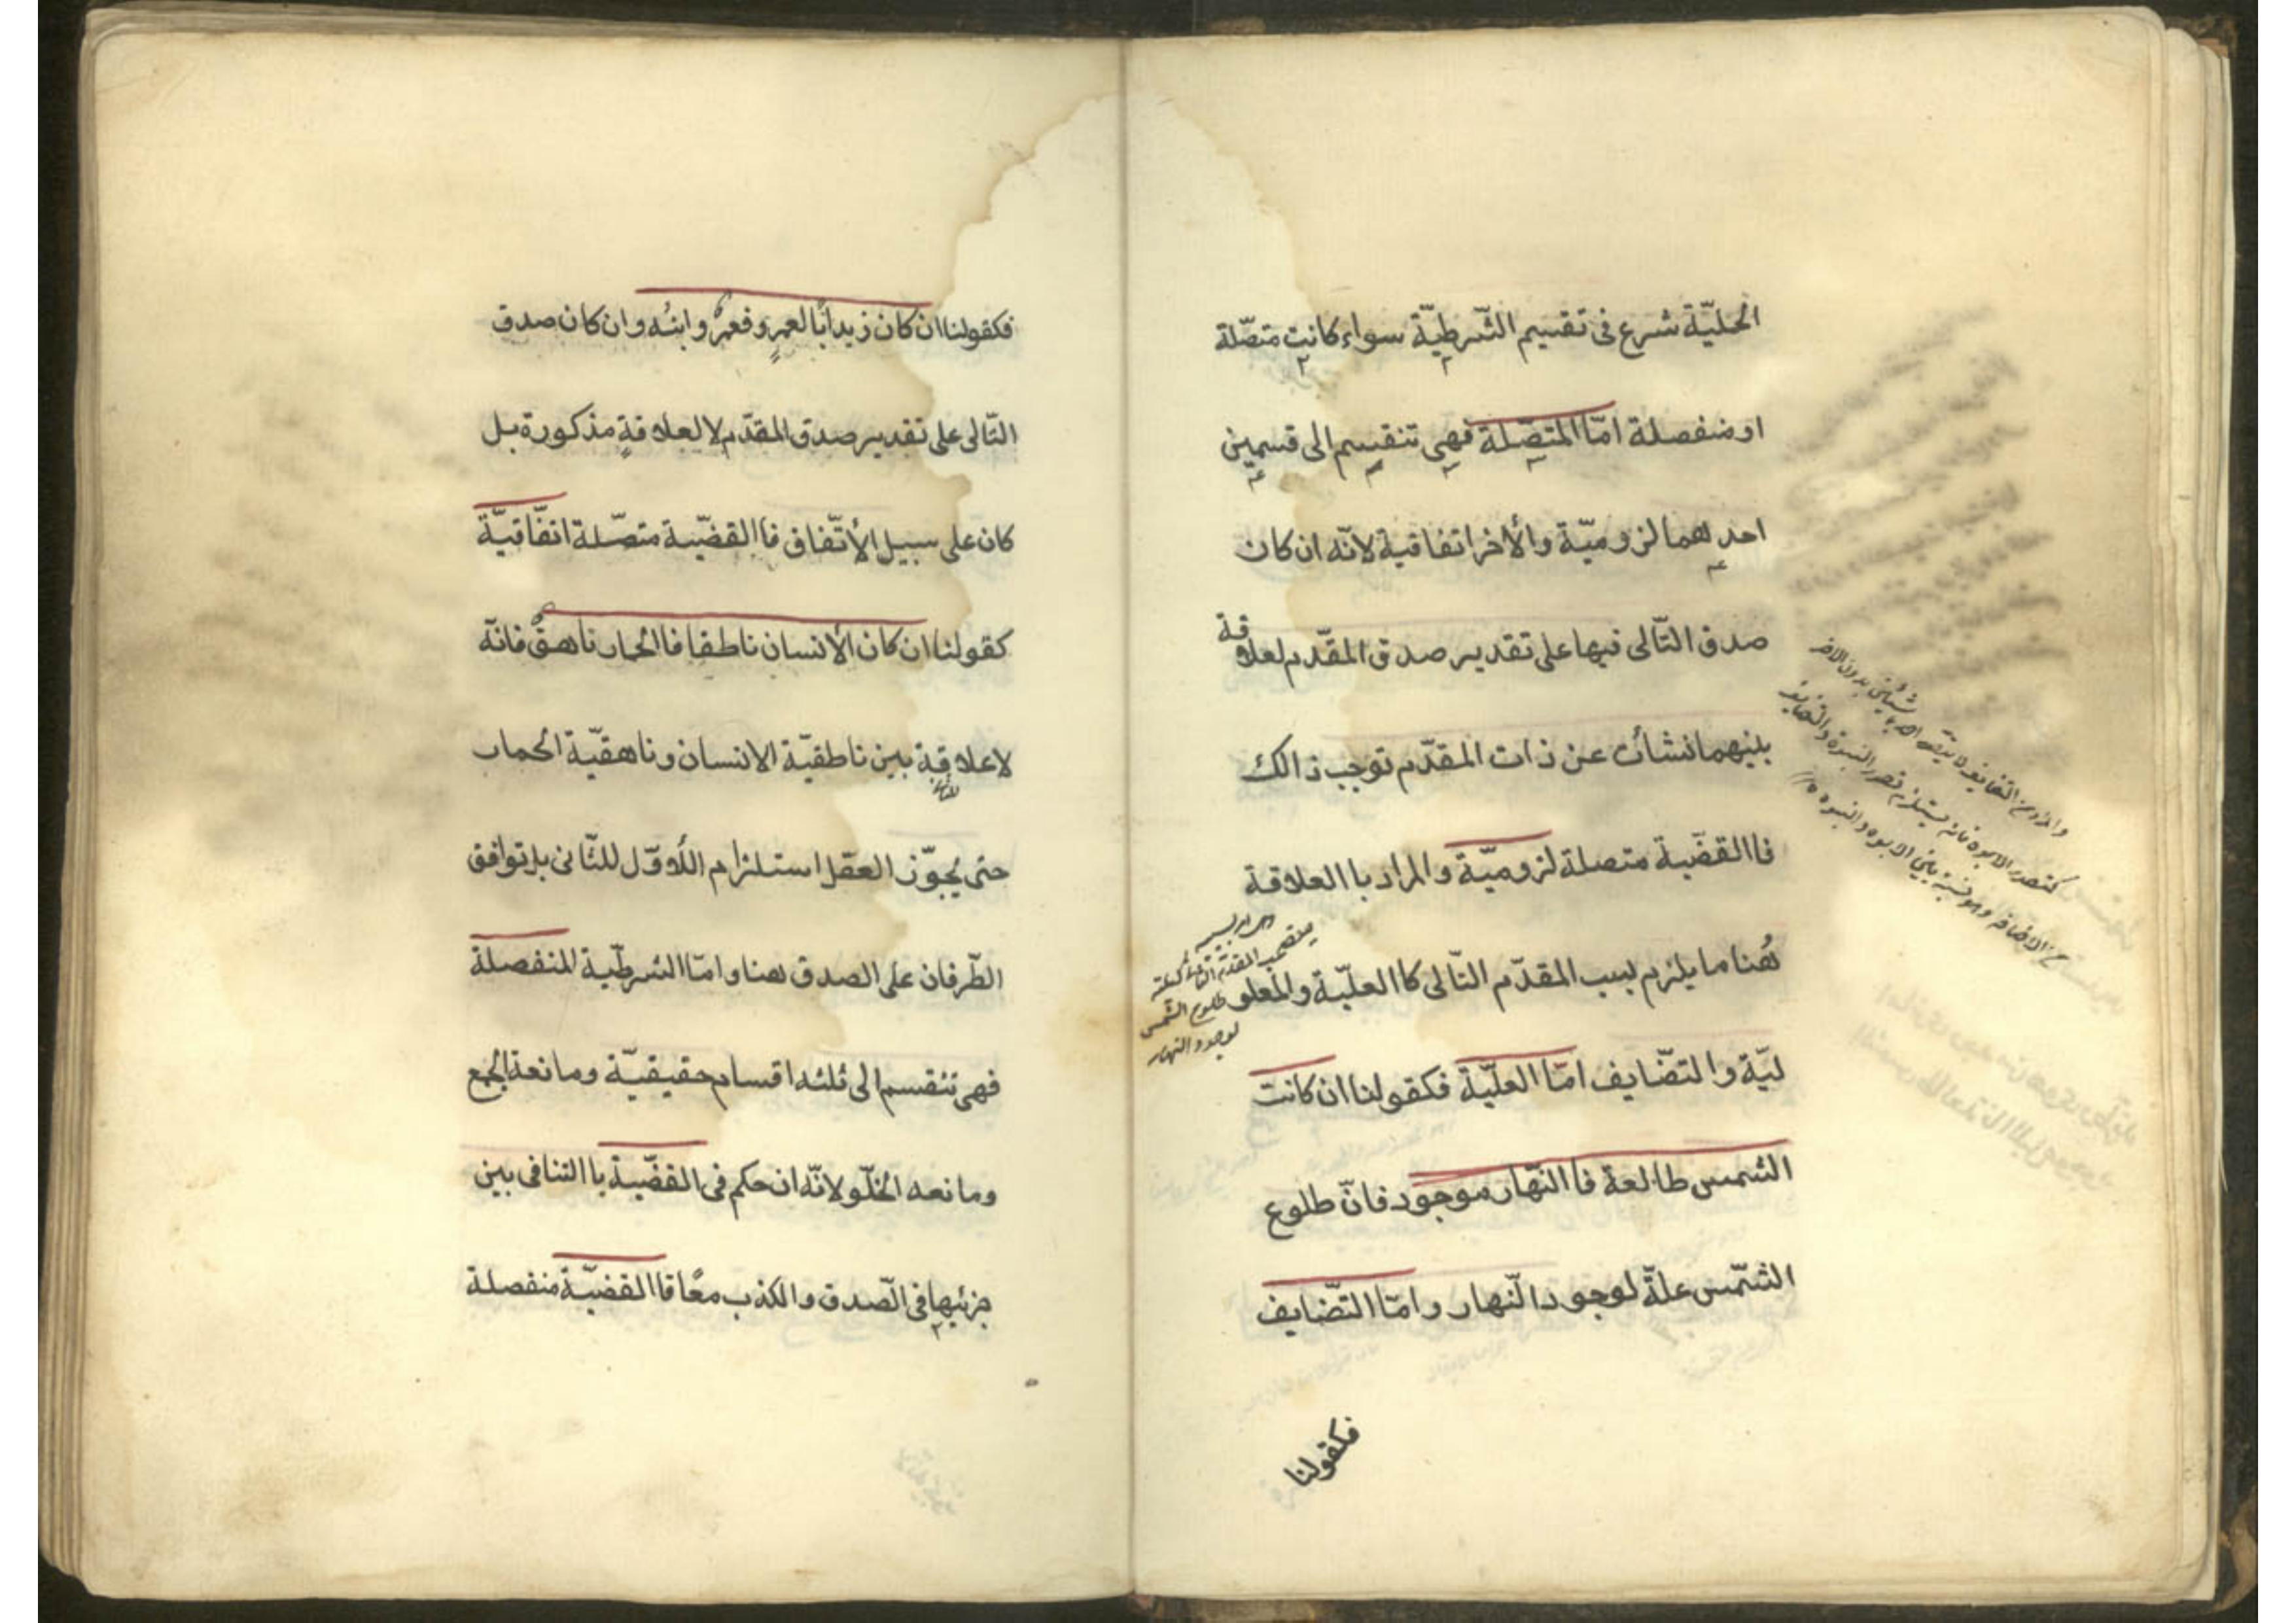 الحمليّة شرع فى تقسيم الشّرطيّة سواء كانت متصّلة
او منفصلة امّا المتصّلة فهى تنقسم الى قسمين
احدهما لزوميّة والأخر اتفاقية لانّه ان كان
صدق التّالى فيها على تقدير صدق المقدّم لعلاقة
بينهما نشأت عن ذات المقدّم توجب ذالك
فاالقضّية متصلة لزوميّة والمراد باالعلاقة
هُنا ما يلزم بسبب المقدّم التّالى كاالعليّة والمعلو
ليّة والتضّايف امّا العليّة فكقولنا ان كانت
الشمس طالعة فاالنّهار موجود فانّ طلوع
الشّمس علّة لوجود النّهار وامّا التّضايف
طلوع الشمس
لوجود النهار
فكقولنا
فكقولنا ان كان زيد أبا لعمرٍو فعمرٌو ابنُه وان كان صدق
التّالى على تقدير صدق المقدّم لا لعلاقةٍ مذكورة بل
كان على سبيل الأتّفاق فاالقضيّة متصّلة اتفّاقيّة
كقولنا ان كان الأنسان ناطقا فاالحمار ناهقٌ فانّه
لا علاقة بين ناطقيّة الانسان وناهقيّة الحمار
حتى يُجوّز العقل استلزام اللأوّل للثّانى بل توافق
الطّرفان على الصدق هنا وامّا الشرطيّة المنفصلة
فهى تنقسم الى ثلثه اقسام حقيقيّة ومانعة الجمع
ومانعه الخلّو لانّه ان حكم فى القضّية باالتنافى بين
جزئيها فى الصّدق والكذب معًا فاالقضيّة منفصلة